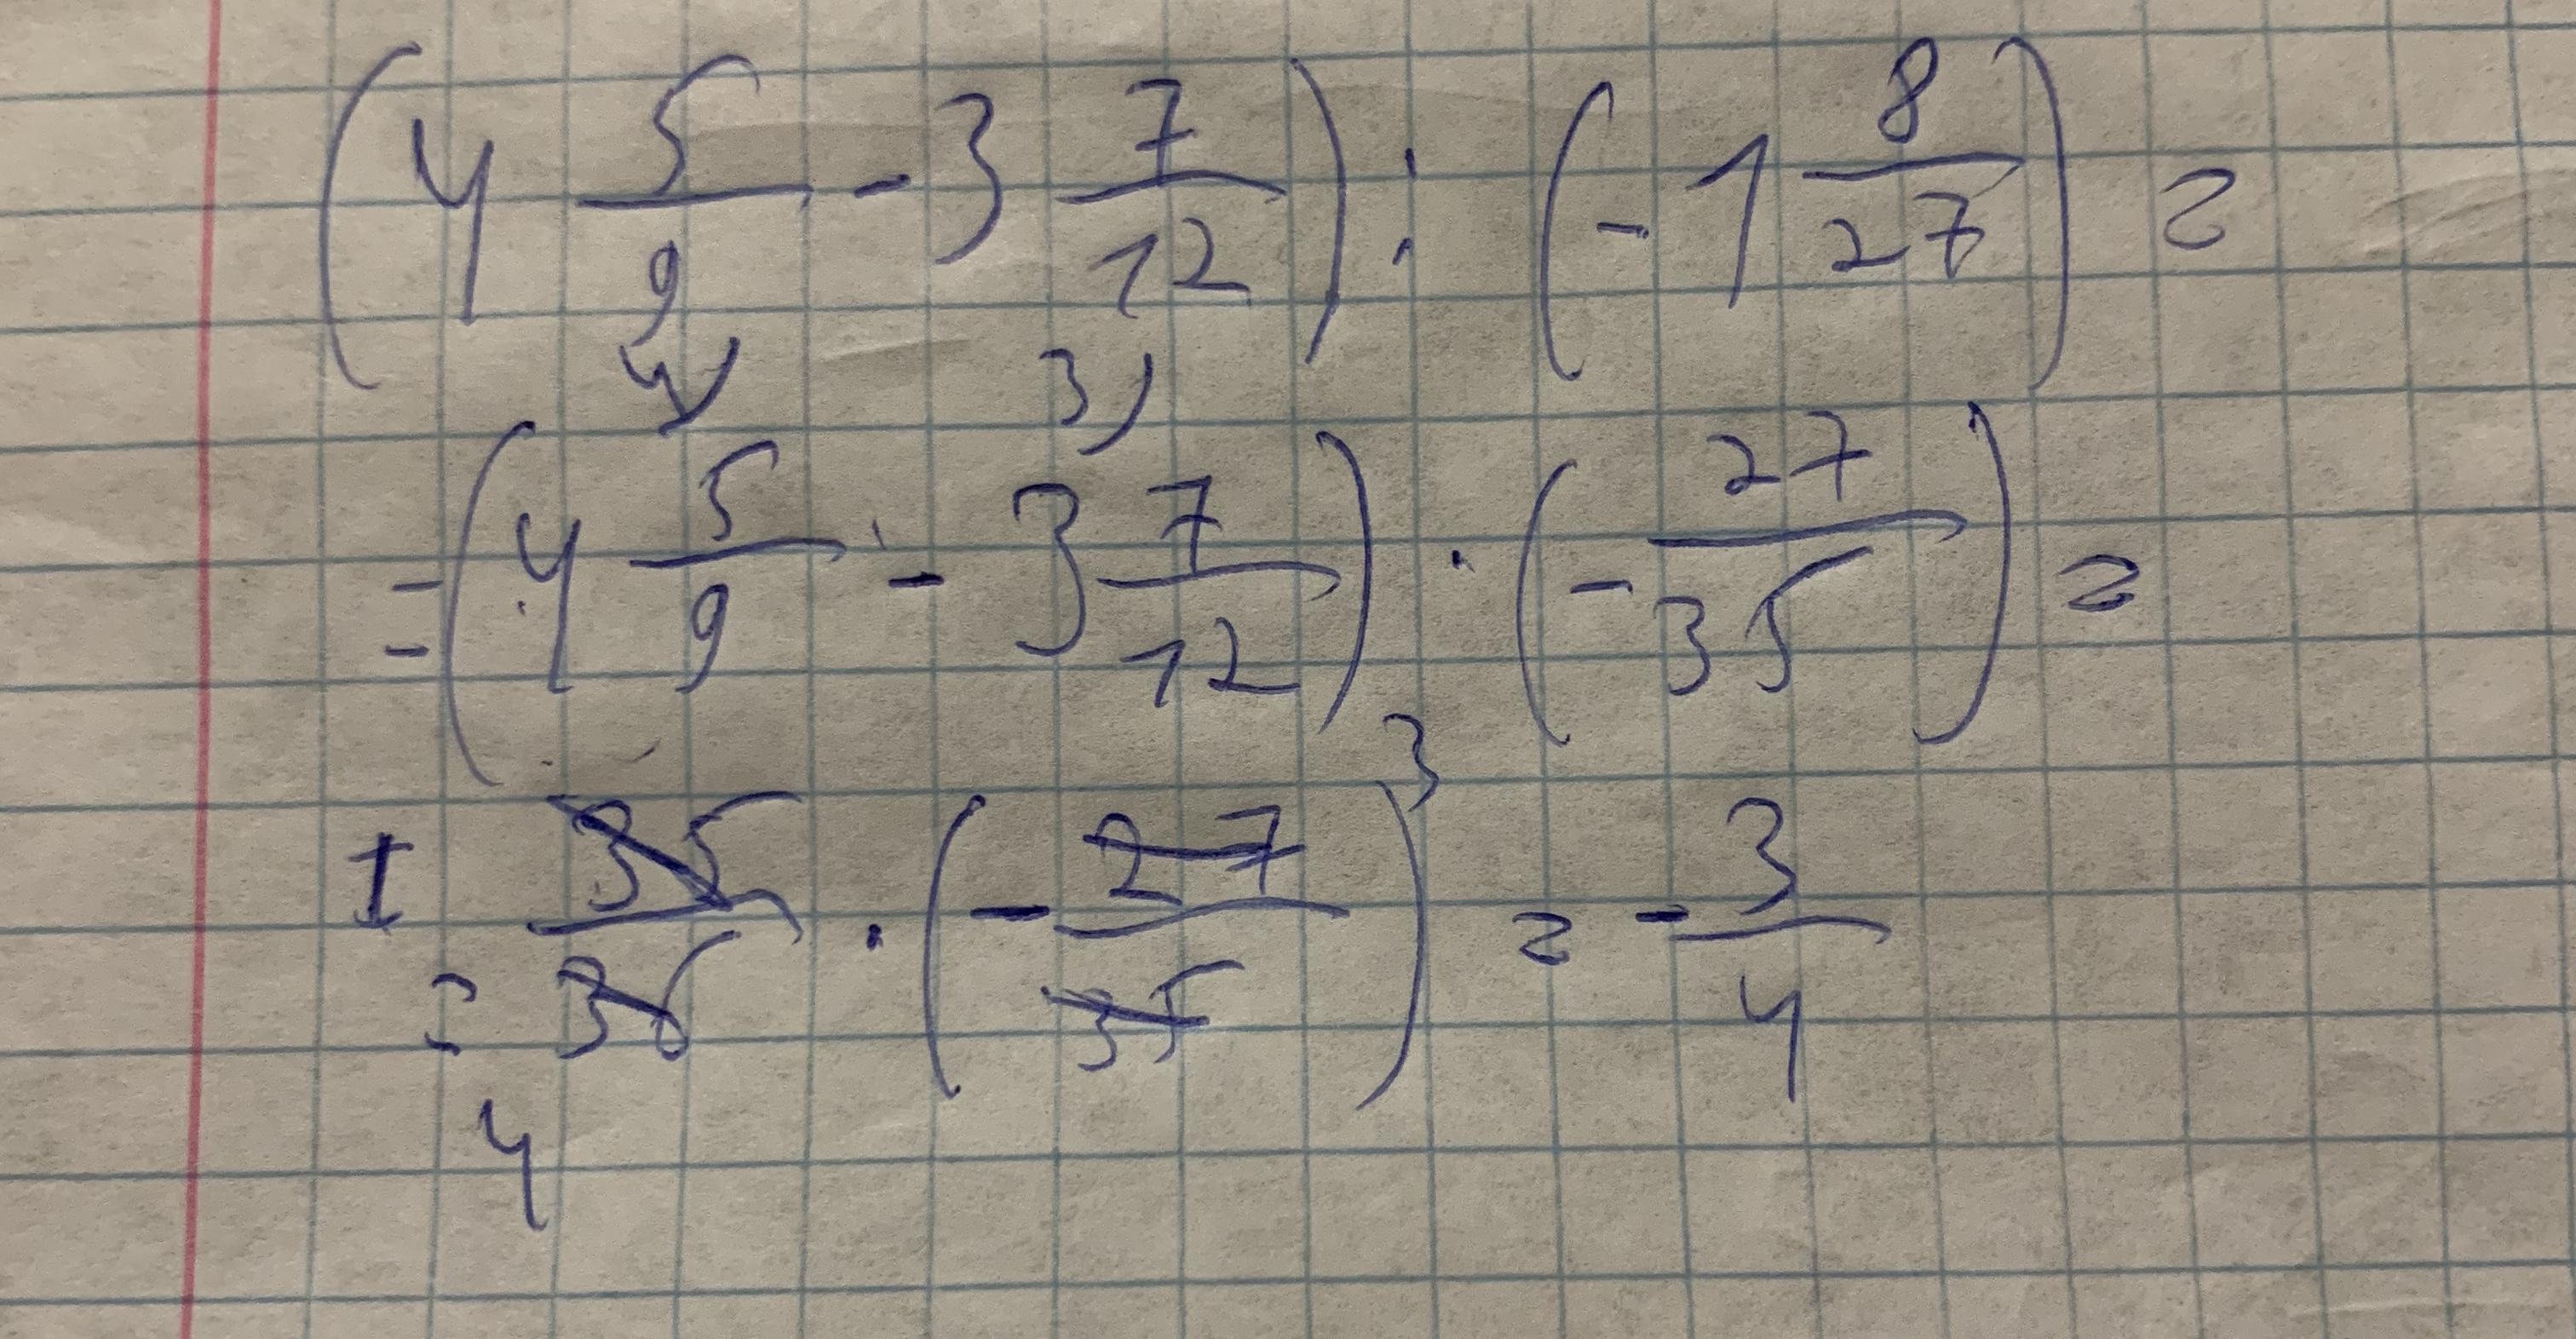 (4 5/9 - 3 7/12) : (-1 8/27) =
4) 3)
= (4 5/9 - 3 7/12) · (- 27/35) =
1 3
= 35/36 · (- 27/35) = - 3/4
4